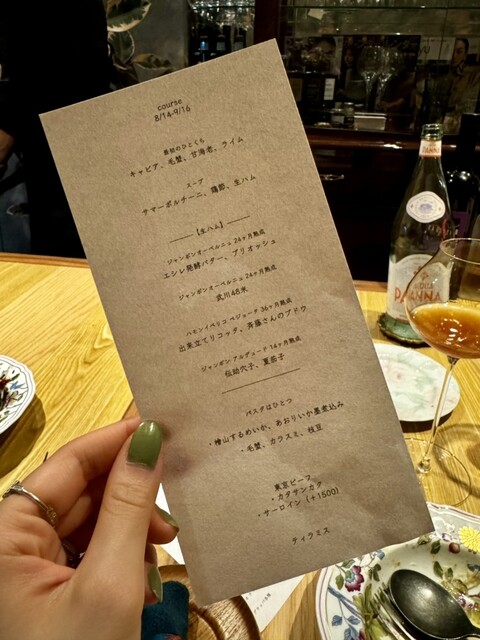 course
8/14-9/16
最初のひとくち
キャビア、毛蟹、甘海老、ライム
スープ
サマーポルチーニ、鶏節、生ハム
【生ハム】
ジャンボンオーベルニュ 24ヶ月熟成
エシレ発酵バター、ブリオッシュ
ジャンボンオーベルニュ 24ヶ月熟成
武川48米
ハモンイベリコ ベジョータ 36ヶ月熟成
出来立てリコッタ、斉藤さんのブドウ
ジャンボン アルデュード 16ヶ月熟成
伝助穴子、夏茄子
パスタはひとつ
・檜山するめいか、あおりいか墨煮込み
・毛蟹、カラスミ、枝豆
東京ビーフ
・カタサンカク
・サーロイン（+1500）
ティラミス
ACQUA
PANNA